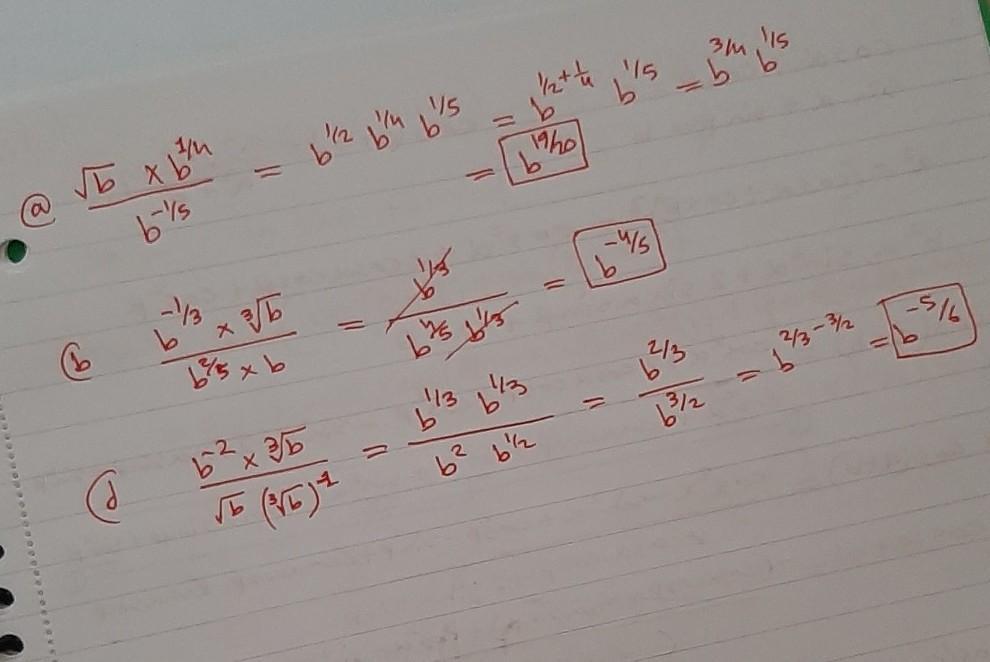 ⓐ (√b × b^{1/4}) / b^{-1/5} = b^{1/2} b^{1/4} b^{1/5} = b^{1/2+1/4} b^{1/5} = b^{3/4} b^{1/5}
= b^{19/20}
ⓑ (b^{-1/3} × ∛b) / (b^{2/5} × b) = b^{1/3} / (b^{4/5} b^{1/3}) = b^{-4/5}
ⓓ (b^{-2} × ∛b) / (√b (∛b)^{-1}) = (b^{1/3} b^{1/3}) / (b^{2} b^{1/2}) = b^{2/3} / b^{3/2} = b^{2/3-3/2} = b^{-5/6}